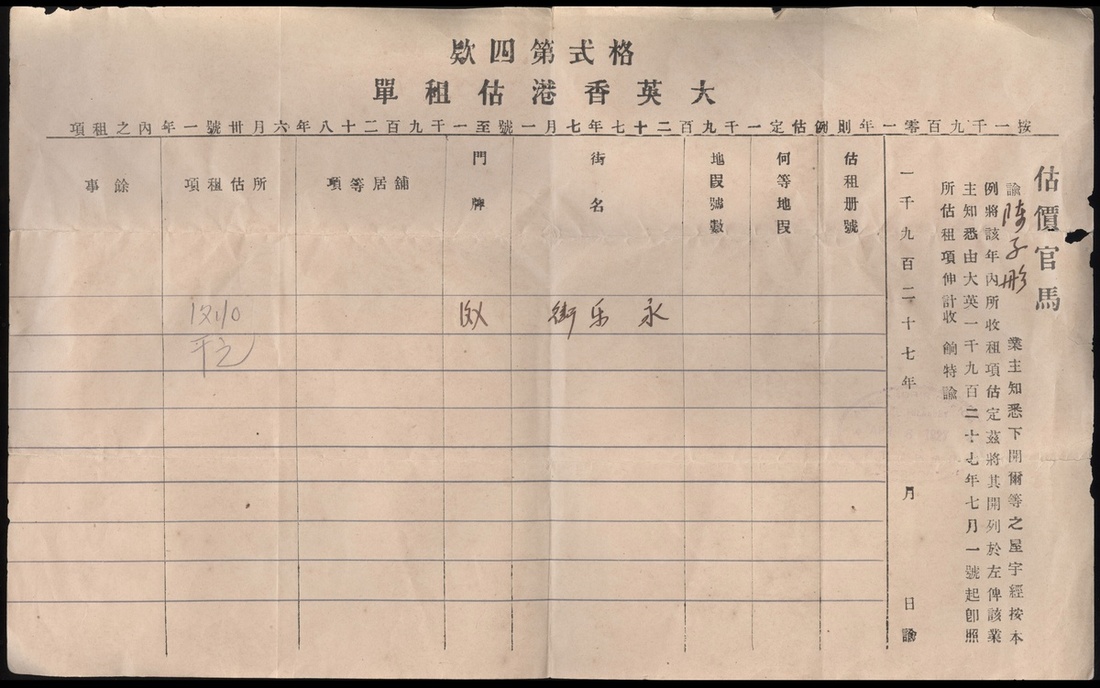 格式第四欵
大英香港估租單
按一千九百零一年則例估定一千九百二十七年七月一號至一千九百二十八年六月卅號一年內之租項
估價官馬
諭陳子彤業主知悉下開爾等之屋宇經按本
例將該年內所收租項估定茲將其開列於左俾該業
主知悉由大英一千九百二十七年七月一號起卽照
所估租項伸計收餉特諭
一千九百二十七年 月 日諭
估租册號
何等地段
地段號數
街名
門牌
舖居等項
所估租項
餘事
永乐街